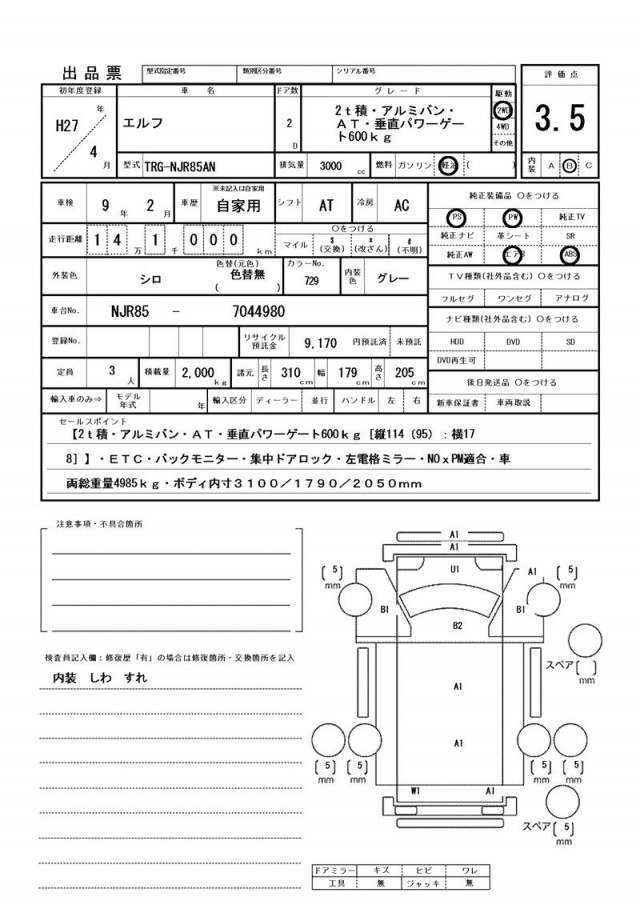 出品票 型式指定番号 類別区分番号 シリアル番号
初年度登録 車名 ドア数 グレード 駆動 評価点
H27 年 4 月 エルフ 2 D
2t積・アルミバン・
AT・垂直パワーゲー
ト600kg
2WD
4WD
その他
3.5
型式 TRG-NJR85AN 排気量 3000 cc 燃料 ガソリン 軽油 ( ) 内装 A B C
車検 9 年 2 月 車歴 ※未記入は自家用 自家用 シフト AT 冷房 AC
純正装備品 〇をつける
走行距離 1 4 万 1 千 0 0 0 km
〇をつける
マイル $(交換) *(改ざん) #(不明)
PS PW 純正TV
純正ナビ 革シート SR
純正AW エアB ABS
外装色 シロ 色替(元色) 色替無 ( ) カラーNo. 729 内装色 グレー
TV種類(社外品含む) 〇をつける
フルセグ ワンセグ アナログ
車台No. NJR85 - 7044980
ナビ種類(社外品含む) 〇をつける
登録No. リサイクル預託金 9,170 円預託済 未預託
HDD DVD SD
DVD再生可
定員 3 人 積載量 2,000 kg 諸元 長さ 310 cm 幅 179 cm 高さ 205 cm
後日発送品 〇をつける
輸入車のみ⇒ モデル年式 年 輸入区分 ディーラー 並行 ハンドル 左 右
新車保証書 車両取説
セールスポイント
【2t積・アルミバン・AT・垂直パワーゲート600kg[縦114(95):横17
8]】・ETC・バックモニター・集中ドアロック・左電格ミラー・NOxPM適合・車
両総重量4985kg・ボディ内寸3100/1790/2050mm
注意事項・不具合箇所
検査員記入欄:修復歴「有」の場合は修復箇所・交換箇所を記入
内装 しわ すれ
A1
A1
[5] mm U1 A1 [5] mm
B1 B1
B2
スペア[ ] mm
A1
A1
[5] mm [5] mm [5] mm [5] mm
W1 A1
スペア[5] mm
ドアミラー キズ ヒビ ワレ
工具 無 ジャッキ 無